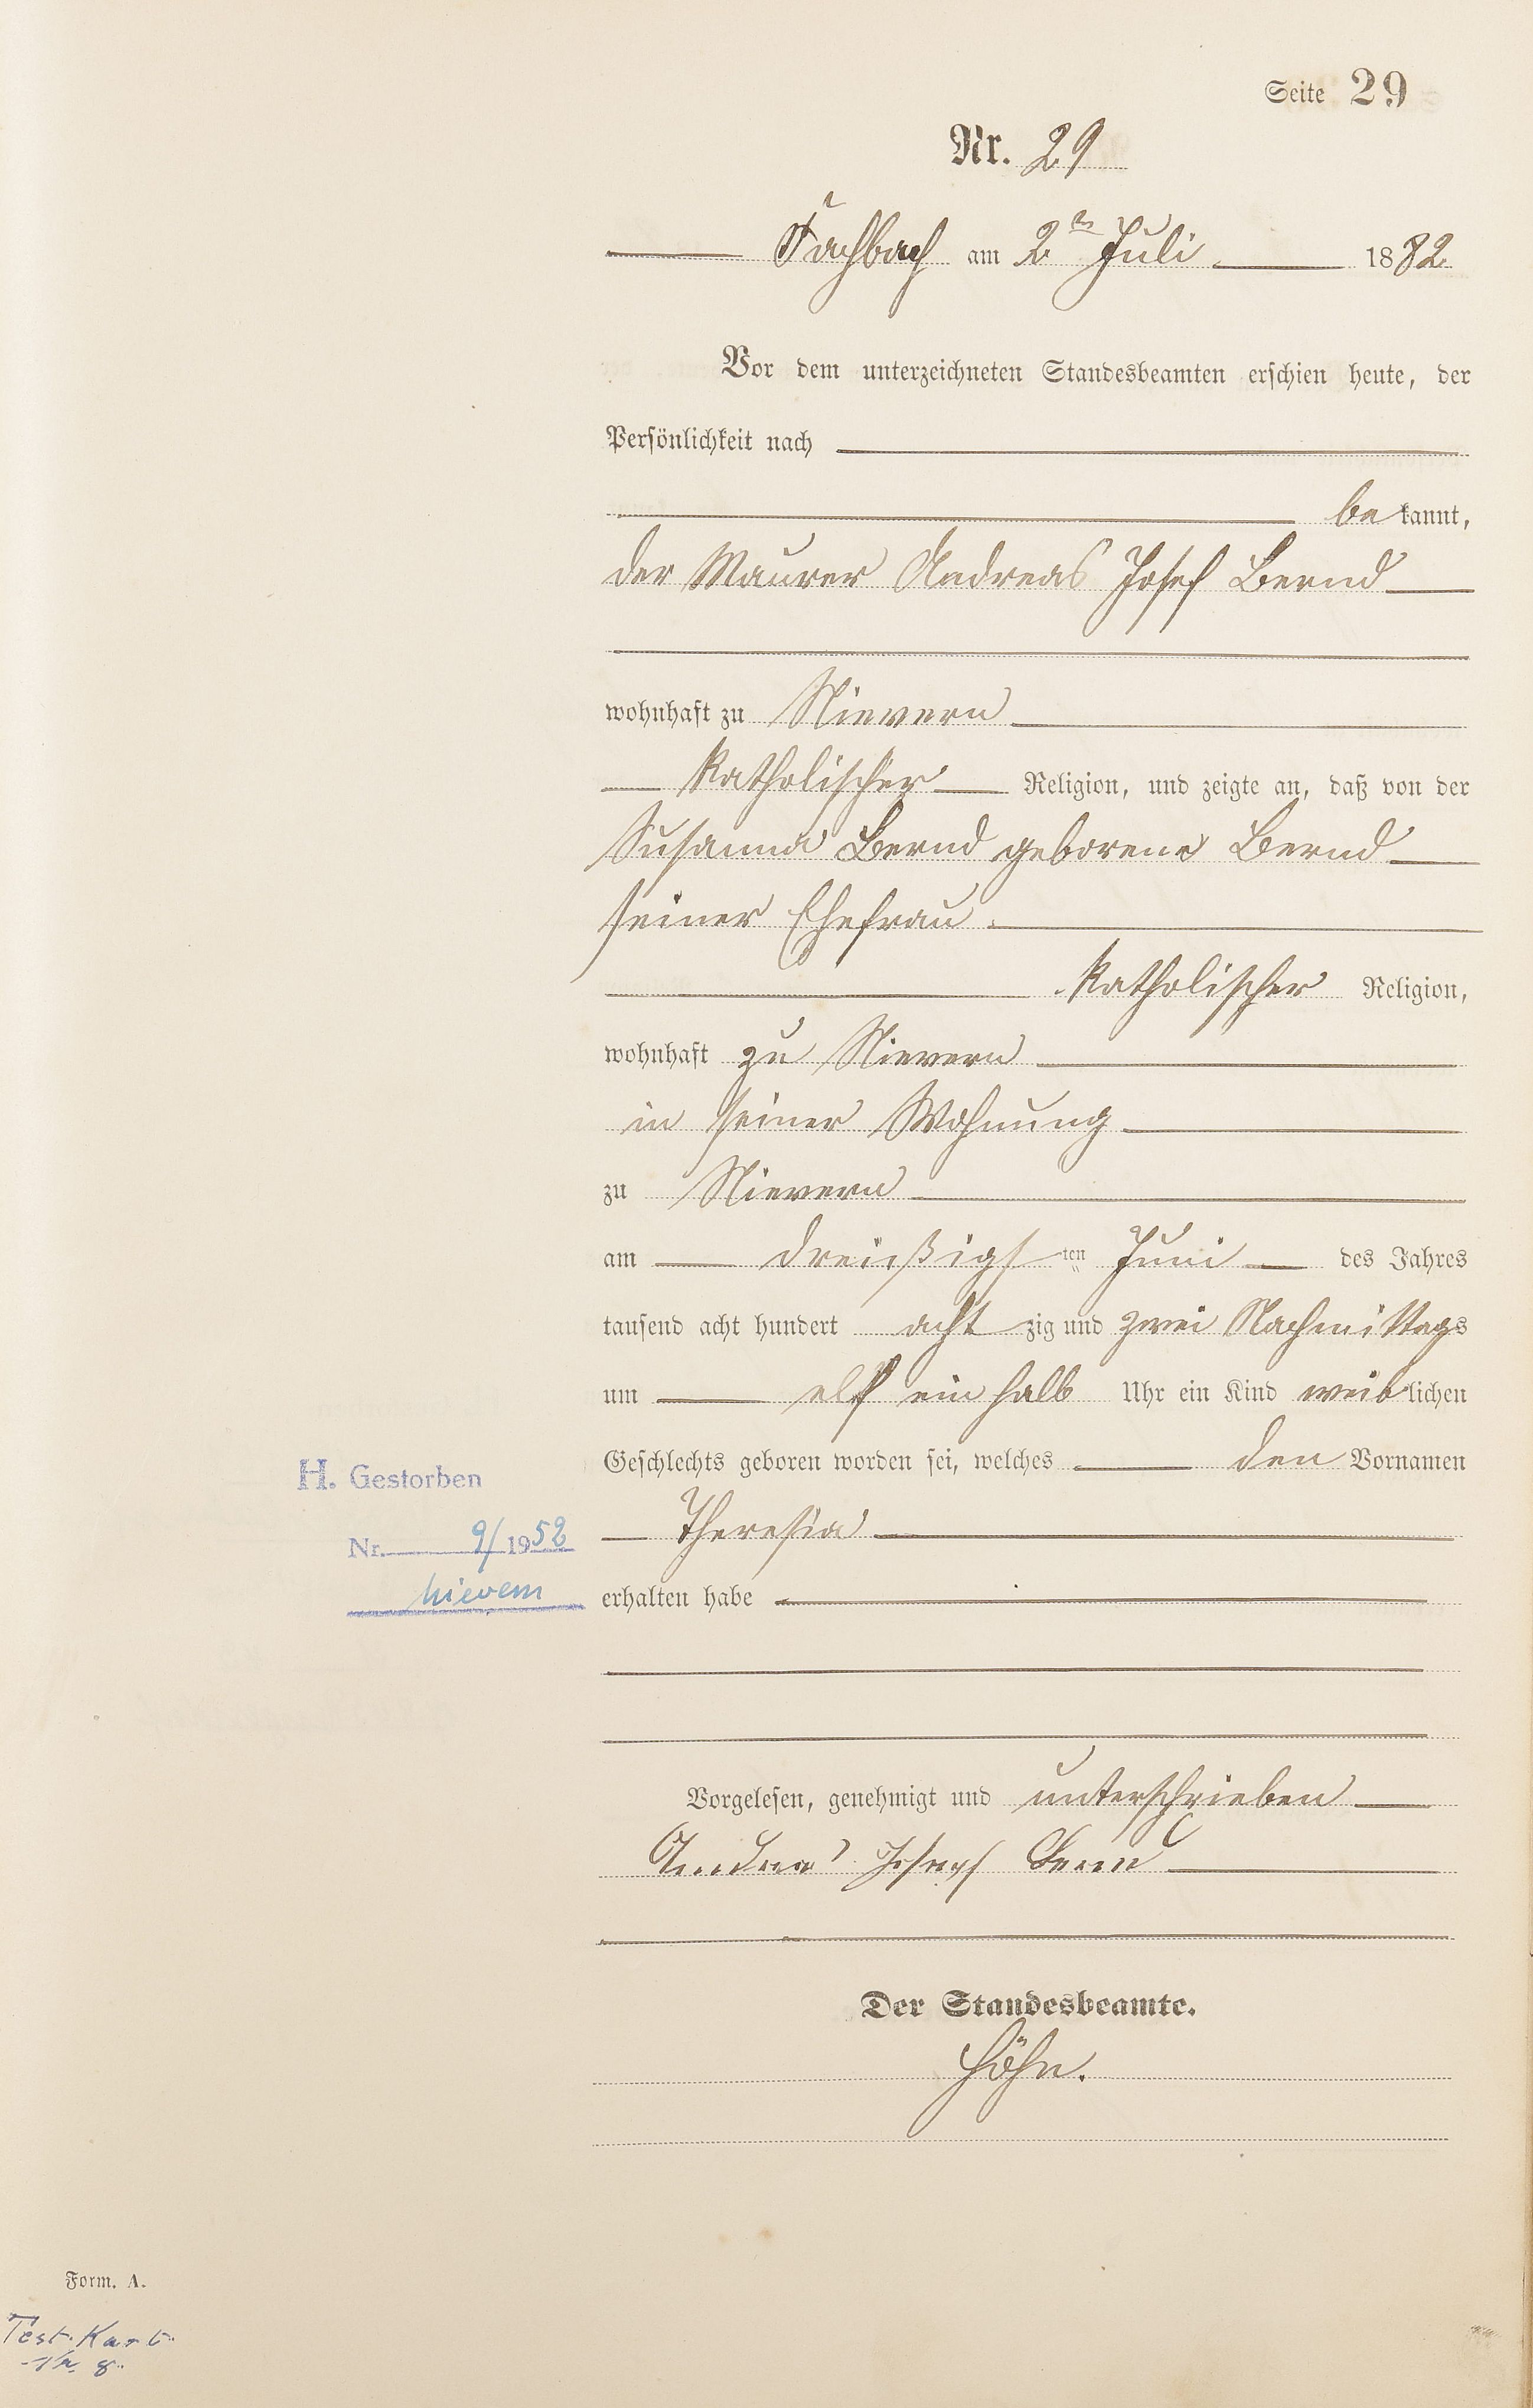 Seite 29
Nr. 29
Fachbach am 2ten Juli 1882
Vor dem unterzeichneten Standesbeamten erschien heute, der
Persönlichkeit nach
bekannt,
der Maurer Andreas Josef Bernd
wohnhaft zu Nievern
katholischer Religion, und zeigte an, daß von der
Susanna Bernd geborene Bernd
seiner Ehefrau
katholischer Religion,
wohnhaft zu Nievern
in seiner Wohnung
zu Nievern
am dreißigsten Juni des Jahres
tausend acht hundert achtzig und zwei Nachmittags
um elf ein halb Uhr ein Kind weiblichen
Geschlechts geboren worden sei, welches den Vornamen
H. Gestorben
Theresia
Nr. 9/1952
Nievern
erhalten habe
Vorgelesen, genehmigt und unterschrieben
Andreas Joseph Bernd
Der Standesbeamte.
Höhn.
Form. A.
Test. Kart.
Nr. 8.